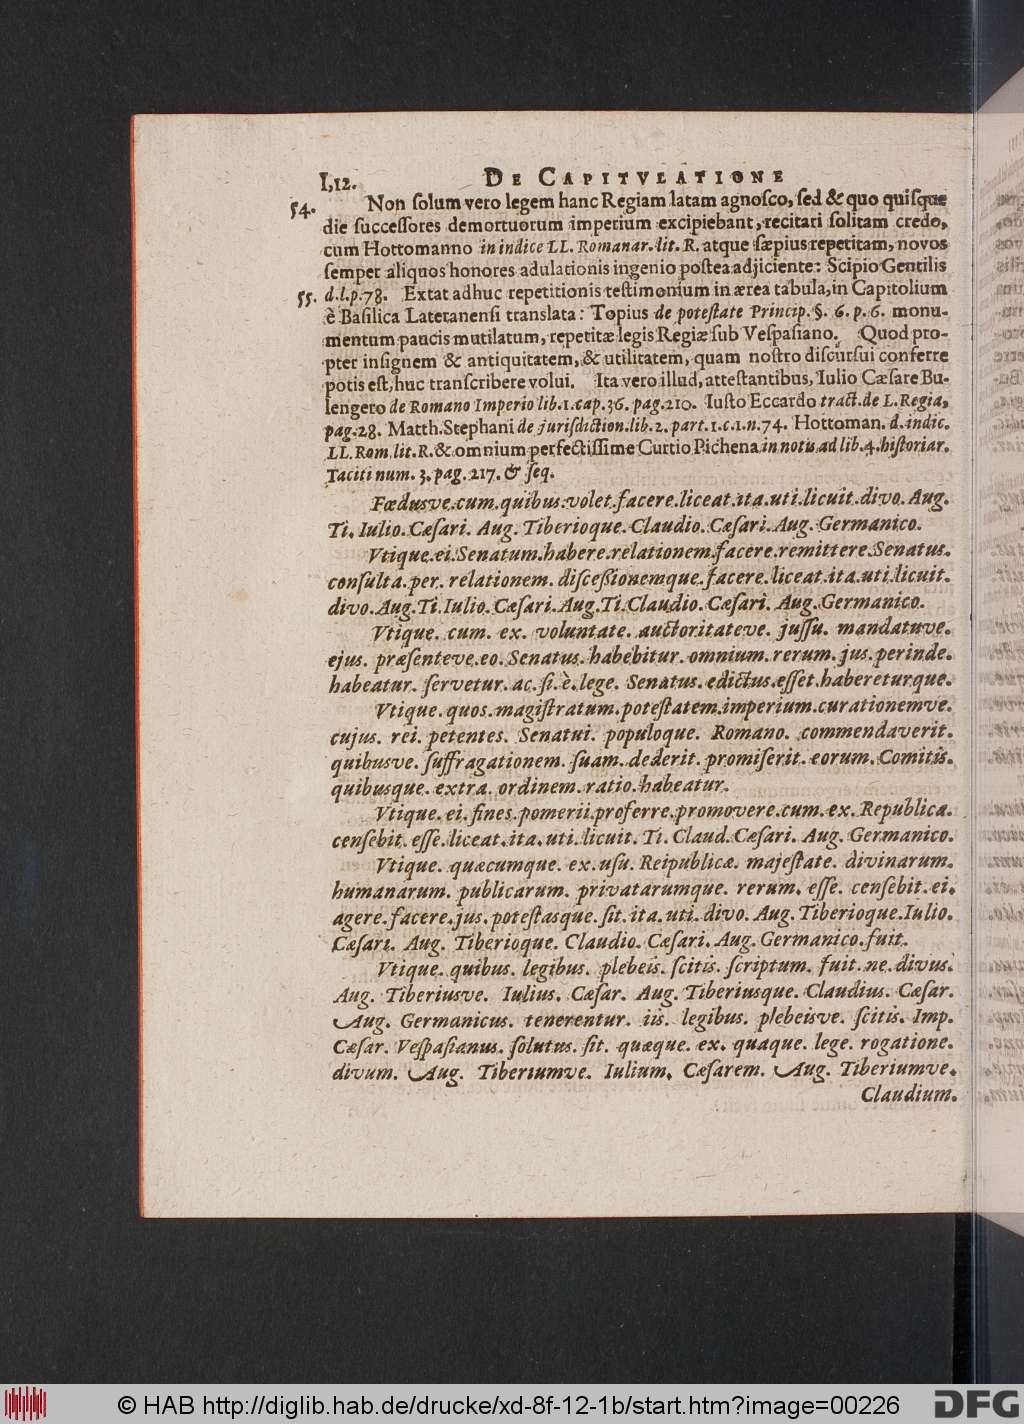 I,12. DE CAPITVLATIONE
54. Non ſolum vero legem hanc Regiam latam agnoſco, ſed & quo quiſque
die ſucceſſores demortuorum imperium excipiebant, recitari ſolitam credo,
cum Hottomanno in indice LL. Romanar. lit. R. atque ſæpius repetitam, novos
ſemper aliquos honores adulationis ingenio poſtea adjiciente: Scipio Gentilis
55. d. l. p. 78. Extat adhuc repetitionis teſtimonium in ærea tabula, in Capitolium
è Baſilica Lateranenſi translata: Topius de poteſtate Princip. §. 6. p. 6. monu-
mentum paucis mutilatum, repetitæ legis Regiæ ſub Veſpaſiano. Quod pro-
pter inſignem & antiquitatem, & utilitatem, quam noſtro diſcurſui conferre
potis eſt, huc tranſcribere volui. Ita vero illud, atteſtantibus, Iulio Cæſare Bu-
lengero de Romano Imperio lib. 1. cap. 36. pag. 210. Iuſto Eccardo tract. de L. Regia,
pag. 28. Matth. Stephani de jurisdiction. lib. 2. part. 1. c. 1. n. 74. Hottoman. d. indic.
LL. Rom. lit. R. & omnium perfectiſſime Curtio Pichena in notis ad lib. 4. hiſtoriar.
Taciti num. 3. pag. 217. & ſeq.
Fœdusve. cum. quibus. volet. facere. liceat. ita. uti. licuit. divo. Aug.
Ti. Iulio. Cæſari. Aug. Tiberioque. Claudio. Cæſari. Aug. Germanico.
Vtique. ei. Senatum. habere. relationem. facere. remittere. Senatus.
conſulta. per. relationem. diſceſſionemque. facere. liceat. ita. uti. licuit.
divo. Aug. Ti. Iulio. Cæſari. Aug. Ti. Claudio. Cæſari. Aug. Germanico.
Vtique. cum. ex. voluntate. auctoritateve. juſſu. mandatuve.
ejus. præſenteve. eo. Senatus. habebitur. omnium. rerum. jus. perinde.
habeatur. ſervetur. ac. ſi. è. lege. Senatus. edictus. eſſet. habereturque.
Vtique. quos. magiſtratum. poteſtatem. imperium. curationemve.
cujus. rei. petentes. Senatui. populoque. Romano. commendaverit.
quibusve. ſuffragationem. ſuam. dederit. promiſerit. eorum. Comitis.
quibusque. extra. ordinem. ratio. habeatur.
Vtique. ei. fines. pomerii. proferre. promovere. cum. ex. Republica.
cenſebit. eſſe. liceat. ita. uti. licuit. Ti. Claud. Cæſari. Aug. Germanico.
Vtique. quæcumque. ex. uſu. Reipublicæ. majeſtate. divinarum.
humanarum. publicarum. privatarumque. rerum. eſſe. cenſebit. ei.
agere. facere. jus. poteſtasque. ſit. ita. uti. divo. Aug. Tiberioque. Iulio.
Cæſari. Aug. Tiberioque. Claudio. Cæſari. Aug. Germanico. fuit.
Vtique. quibus. legibus. plebeis. ſcitis. ſcriptum. fuit. ne. divus.
Aug. Tiberiusve. Iulius. Cæſar. Aug. Tiberiusque. Claudius. Cæſar.
Aug. Germanicus. tenerentur. iis. legibus. plebeisve. ſcitis. Imp.
Cæſar. Veſpaſianus. ſolutus. ſit. quæque. ex. quaque. lege. rogatione.
divum. Aug. Tiberiumve. Iulium. Cæſarem. Aug. Tiberiumve.
Claudium.
© HAB http://diglib.hab.de/drucke/xd-8f-12-1b/start.htm?image=00226
DFG